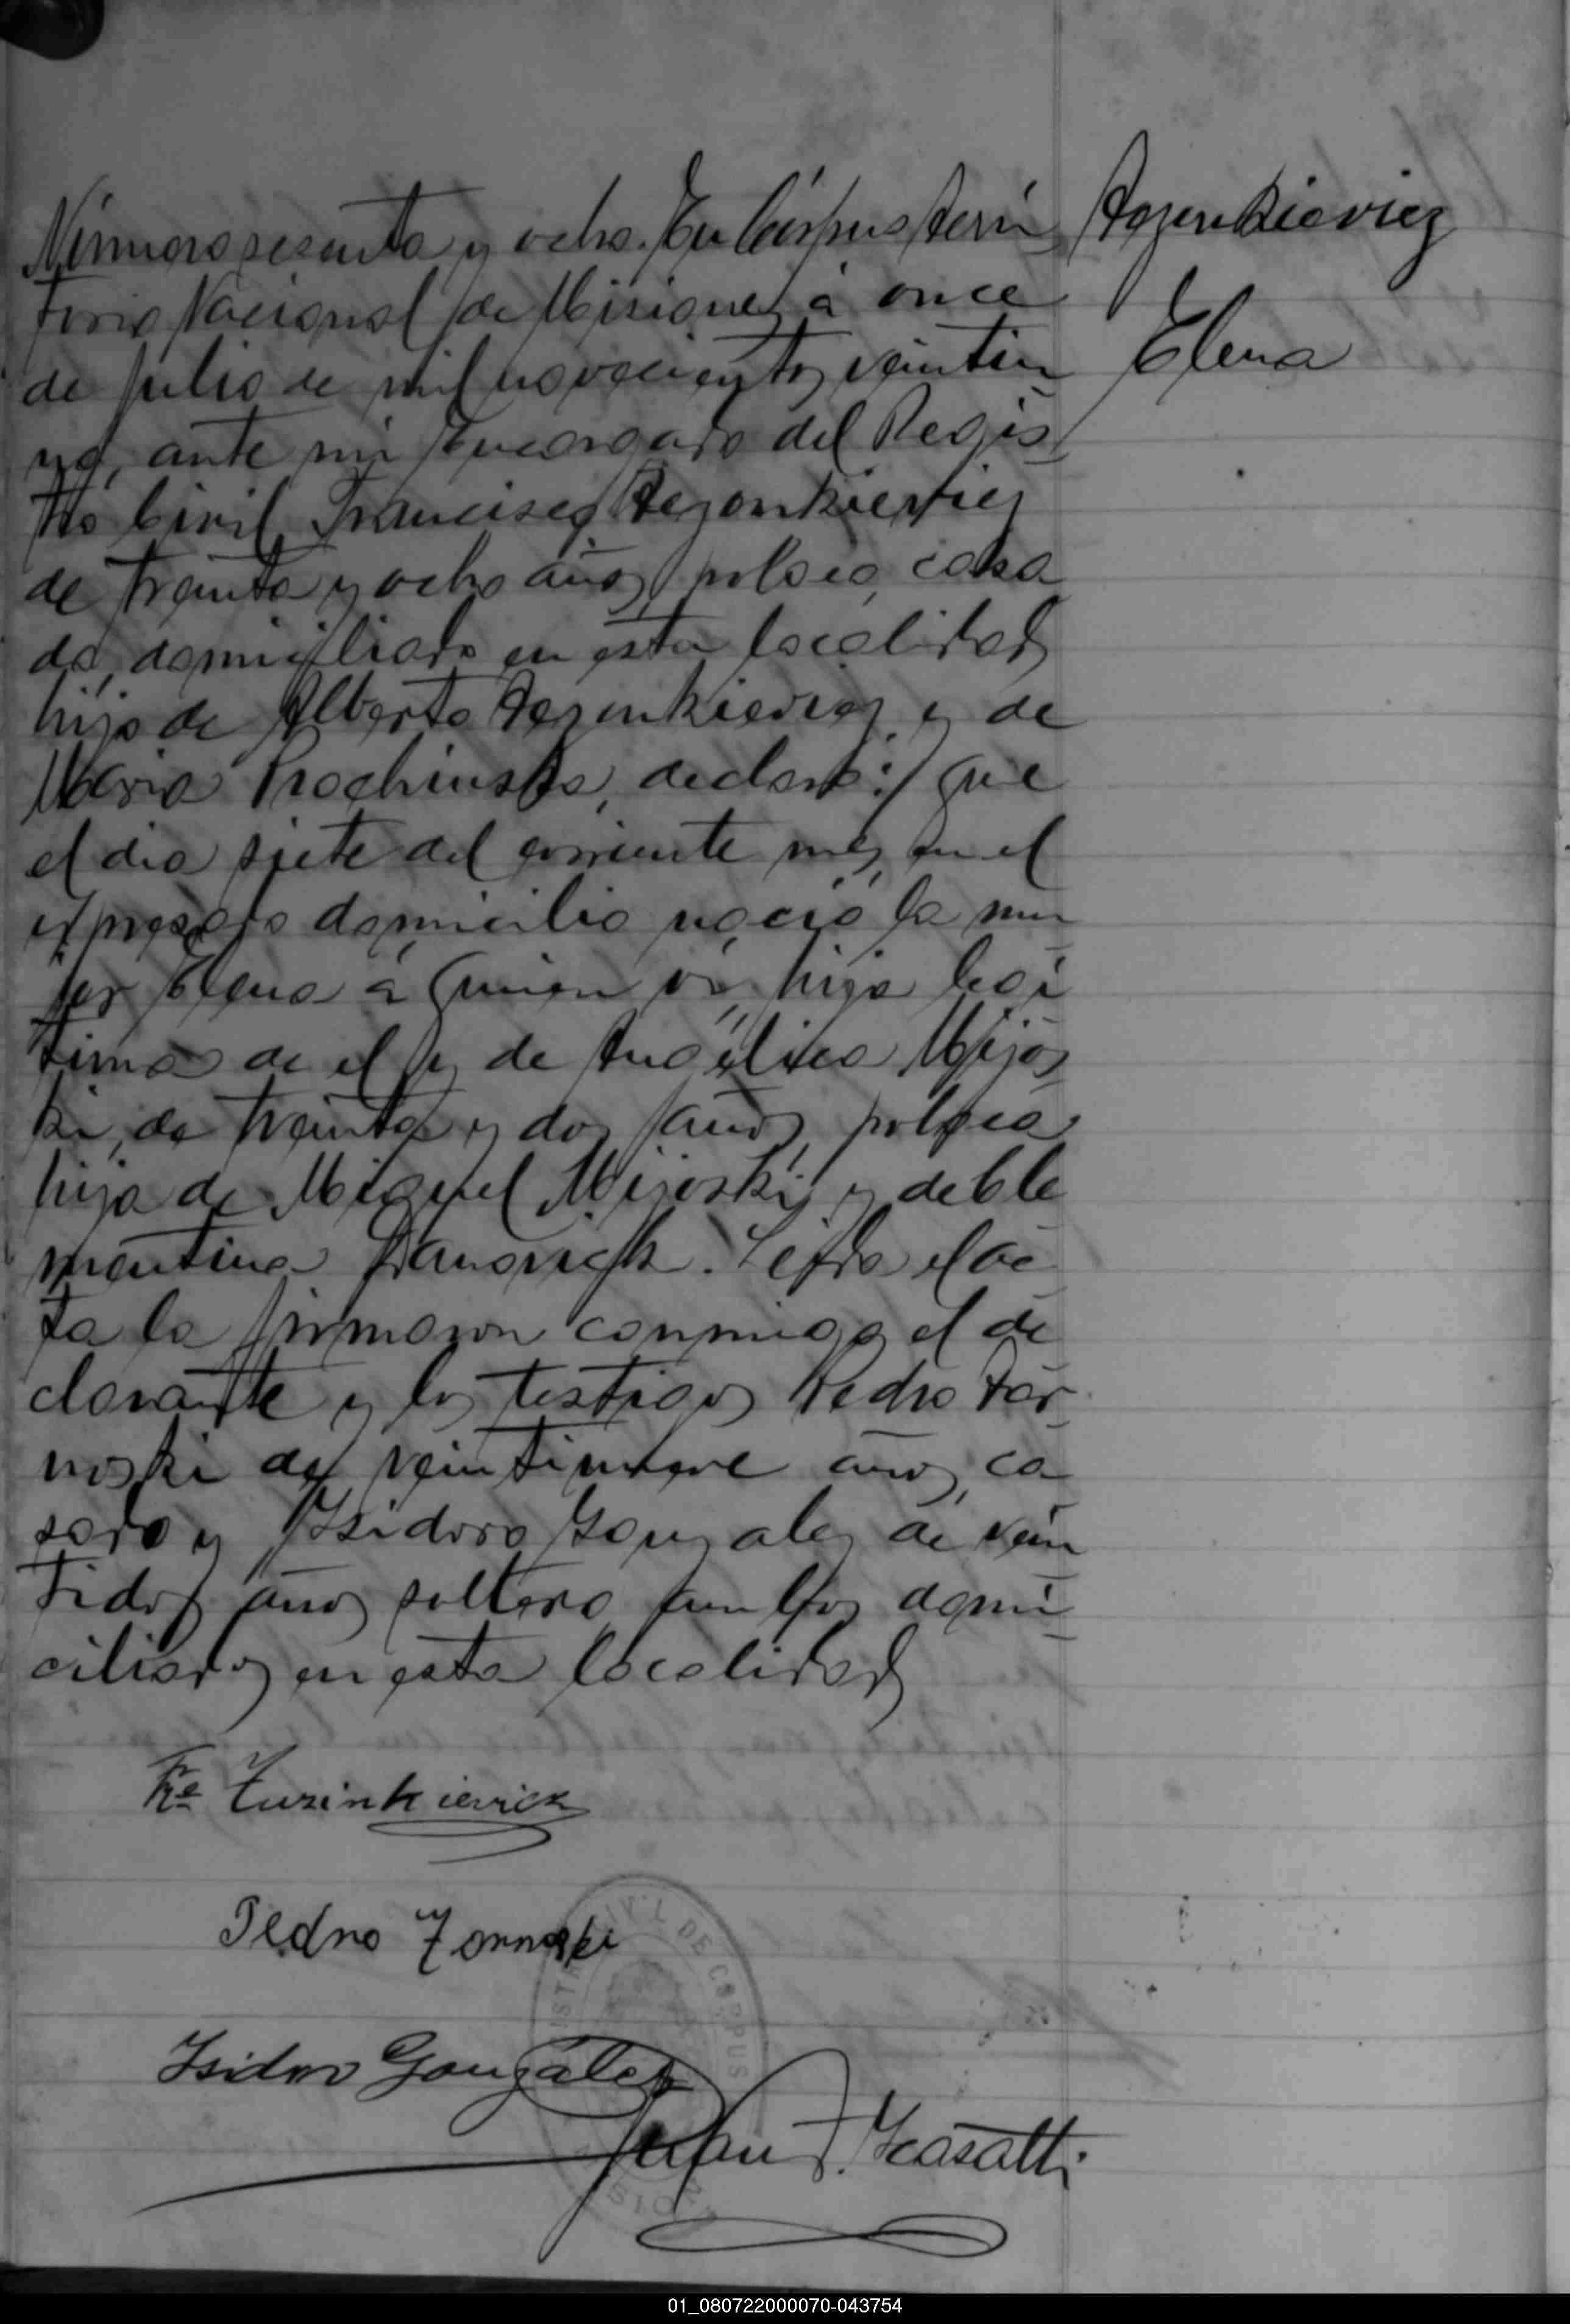 Número sesenta y ocho. En Córpus terri
torio Nacional de Misiones á once
de Julio de mil novecientos veintiu
no, ante mi Encargado del Regis
tro Civil Francisco
de treinta y ocho años, polaco, casa
do, domiciliado en esta localidad
hijo de Alberto y de
Maria declaró: Que
el dia siete del corriente mes, en el
expresado domicilio nació la mu
jer Elena á quien vi, hija legi
tima de el y de Angélica Mijos
ki, de treinta y dos años, polaca
hija de Miguel Mijoski y de Cle
mentina Leida el ac
ta la firmaron conmigo el de
clarante y los testigos Pedro Zar
noski de veintinueve años, ca
sado y Isidoro Gonzalez de vein
tidos años soltero, ambos domi
ciliados en esta localidad
Elena
Fco Zuzinkievicz
Pedro Zornoski
Isidoro González
Juan F. Casatti
REGISTRO CIVIL DE CORPUS
MISIONES
01_080722000070-043754